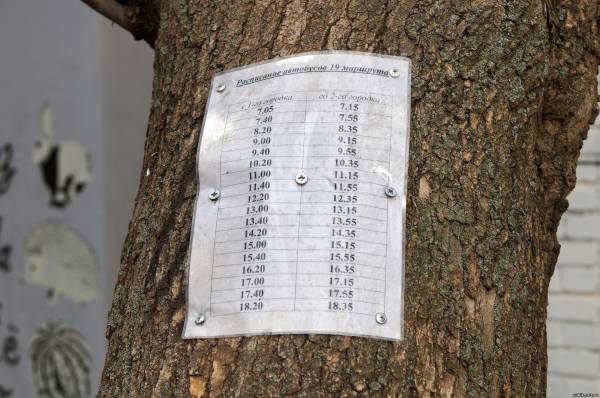 Расписание автобусов 19 маршрута
с 1-го городка со 2-го городка
7.05 7.15
7.40 7.55
8.20 8.35
9.00 9.15
9.40 9.55
10.20 10.35
11.00 11.15
11.40 11.55
12.20 12.35
13.00 13.15
13.40 13.55
14.20 14.35
15.00 15.15
15.40 15.55
16.20 16.35
17.00 17.15
17.40 17.55
18.20 18.35